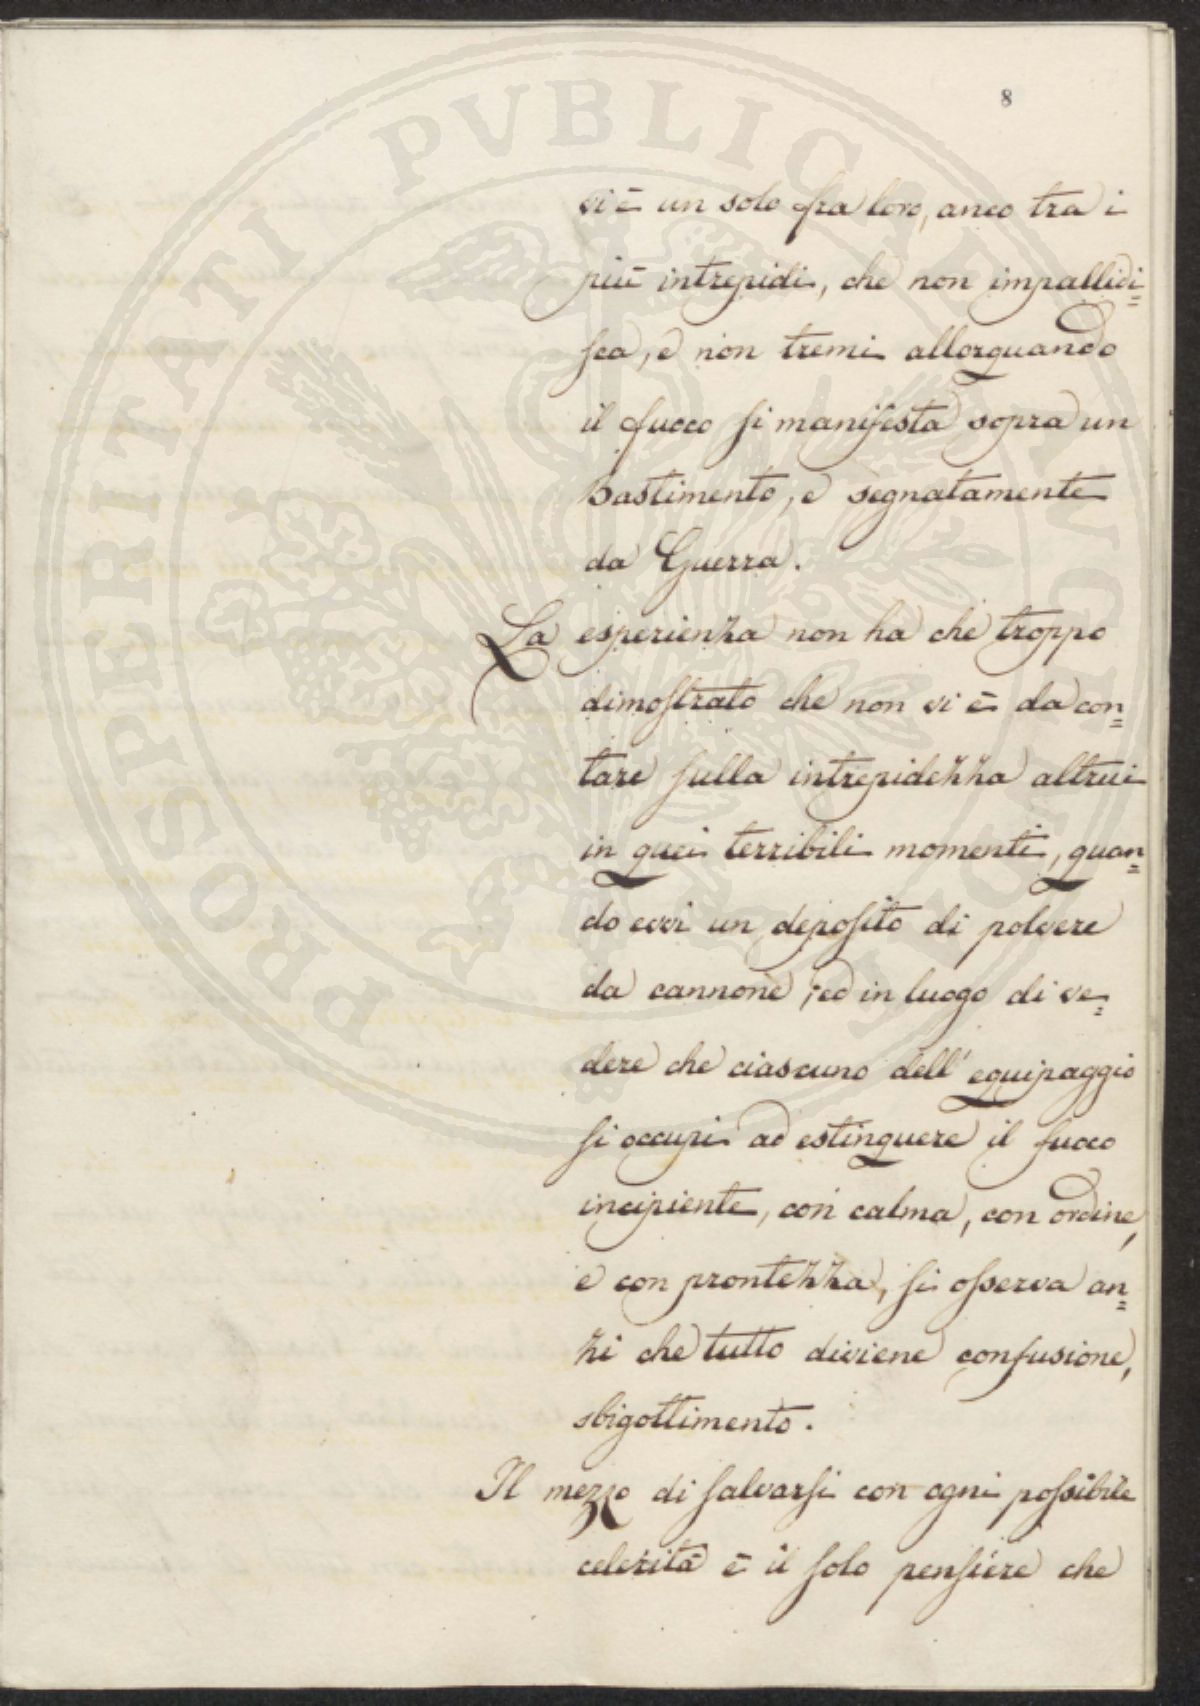 8
vi è un solo fra loro, anco tra i
più intrepidi, che non impallidi=
sca, e non tremi allorquando
il fuoco si manifesta sopra un
Bastimento, e segnatamente
da Guerra.
La esperienza non ha che troppo
dimostrato che non vi è da con=
tare sulla intrepidezza altrui
in quei terribili momenti, quan=
do evvi un deposito di polvere
da cannone; ed in luogo di ve=
dere che ciascuno dell'equipaggio
si occupi ad estinguere il fuoco
incipiente, con calma, con ordine,
e con prontezza, si osserva an=
zi che tutto diviene confusione,
sbigottimento.
Il mezzo di salvarsi con ogni possibile
celerità è il solo pensiere che
PROSPERITATI PVBLICAE